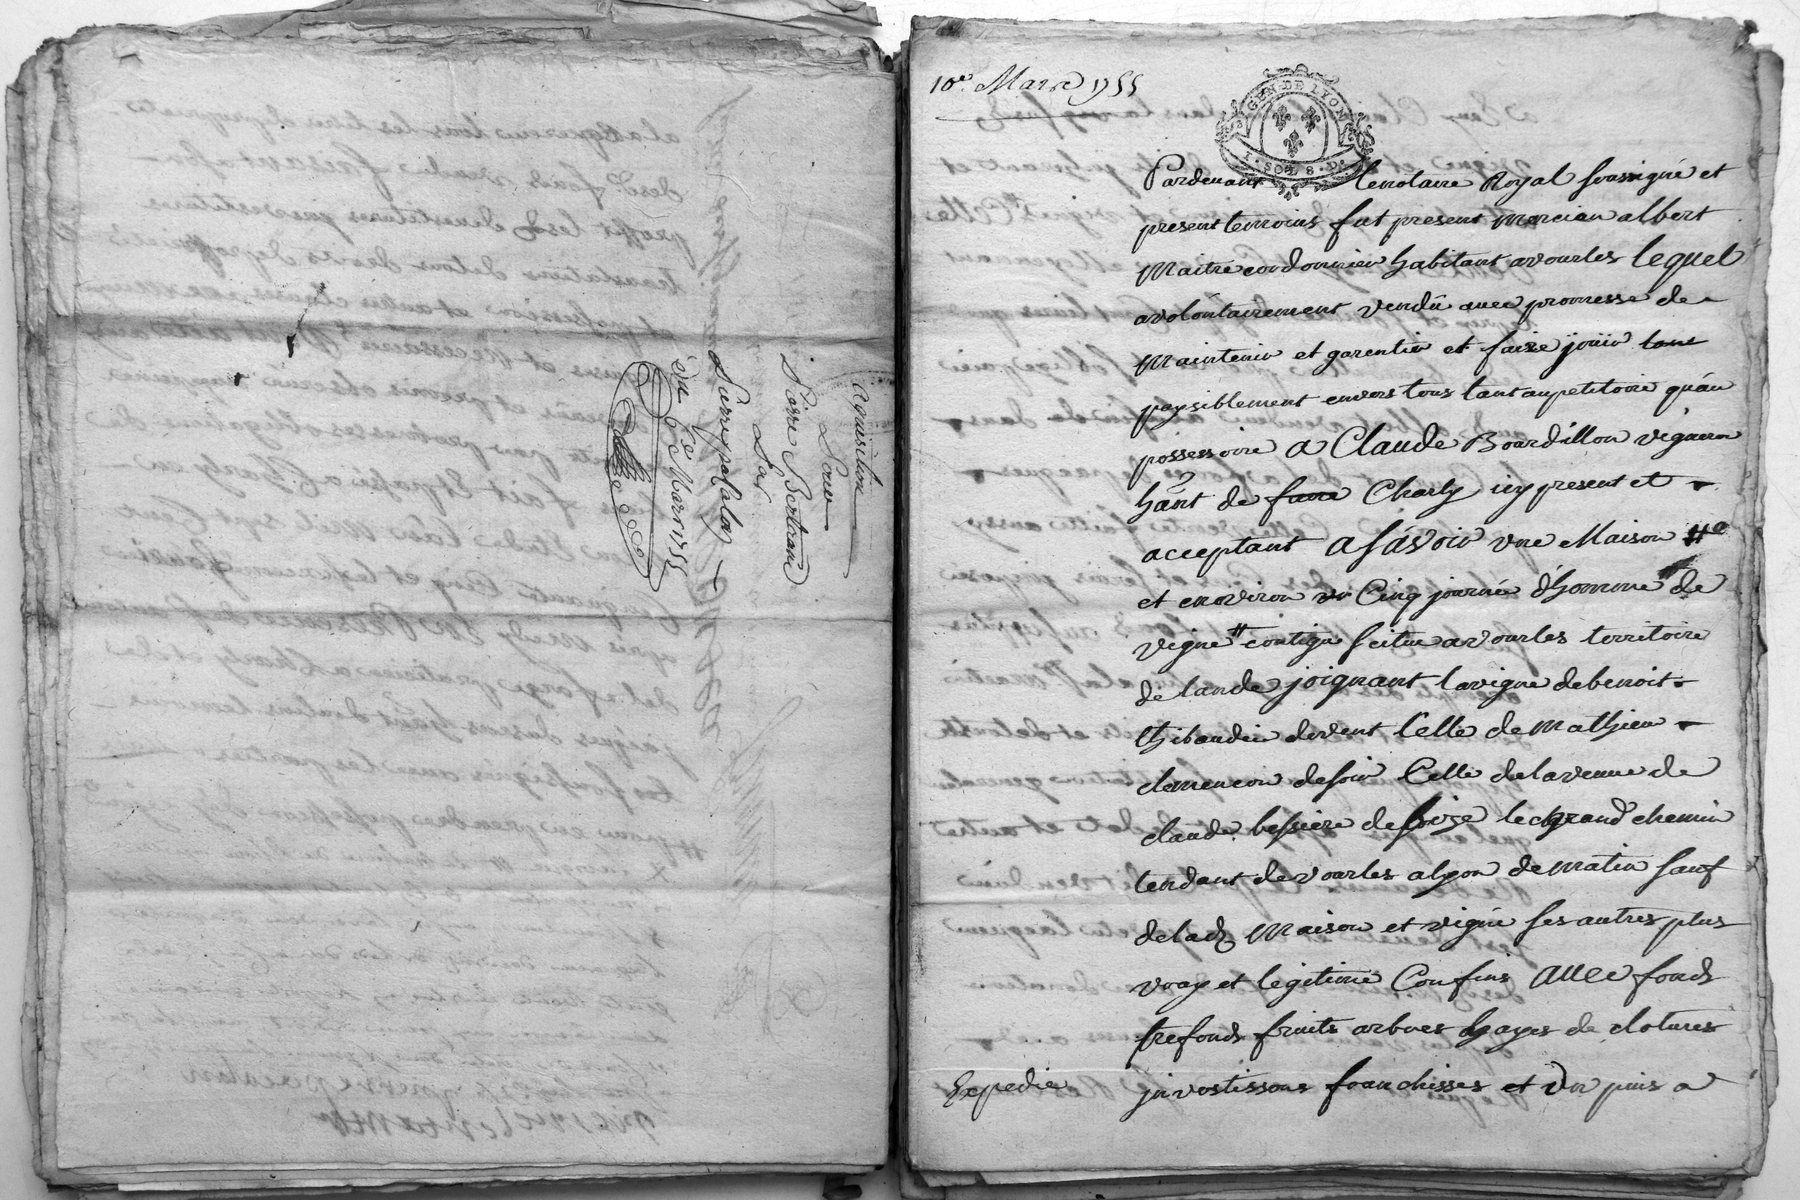 aquisition
Pour
Pierre Bertrand
Par
Pierre palalay
du 6e Mars 1755
10e. Mars 1755
GEN. DE LYON
I. SOLS. D.
Pardevant le notaire Royal soussigné et
present temoins fut present marcian albert
Maitre cordonnier habitant a vourles lequel
a volontairement vendû avec promesse de
Maintenir et garentir et faire jouir
paysiblement envers tous tant au petitoire qu'au
possessoire a Claude Bourdillon vigneron
hãnt de Charly icy present et
acceptant a sávoir une Maison #
et environ Cinq journée d'homme de
vigne # contigu scitue a vourles territoire
de lande joignant la vigne de benoit
thibaudier de vent Celle de Mathieu
clemencon de soir Celle de la veuve de
claude bessiere de bize le grand chemin
tendant de vourles a lyon de matin sauf
de lad Maison et vigne ses autres plus
vray et legitime Confins avec fonds
trefonds fruits arbres hayes de clotures
investissons franchisses et un puis a
Expedie